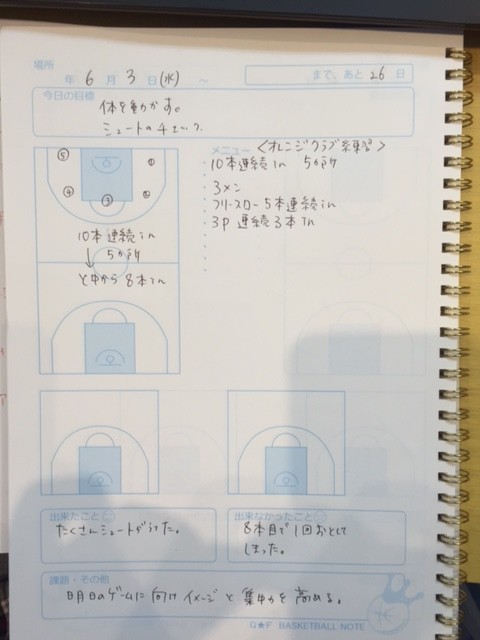 場所
年 6 月 3 日(水) ~
まで、あと 26 日
今日の目標
体を動かす。
シュートのチェック。
メニュー <オレンジクラブ練習>
10本連続in 5か所
3メン
フリースロー5本連続in
3P 連続3本in
⑤ ①
④ ③ ②
10本連続in
↓ 5か所
と中から8本in
出来たこと
たくさんシュートがうてた。
出来なかったこと
8本目で1回おとして
しまった。
課題・その他
明日のゲームに向けイメージと集中力を高める。
G★F BASKETBALL NOTE